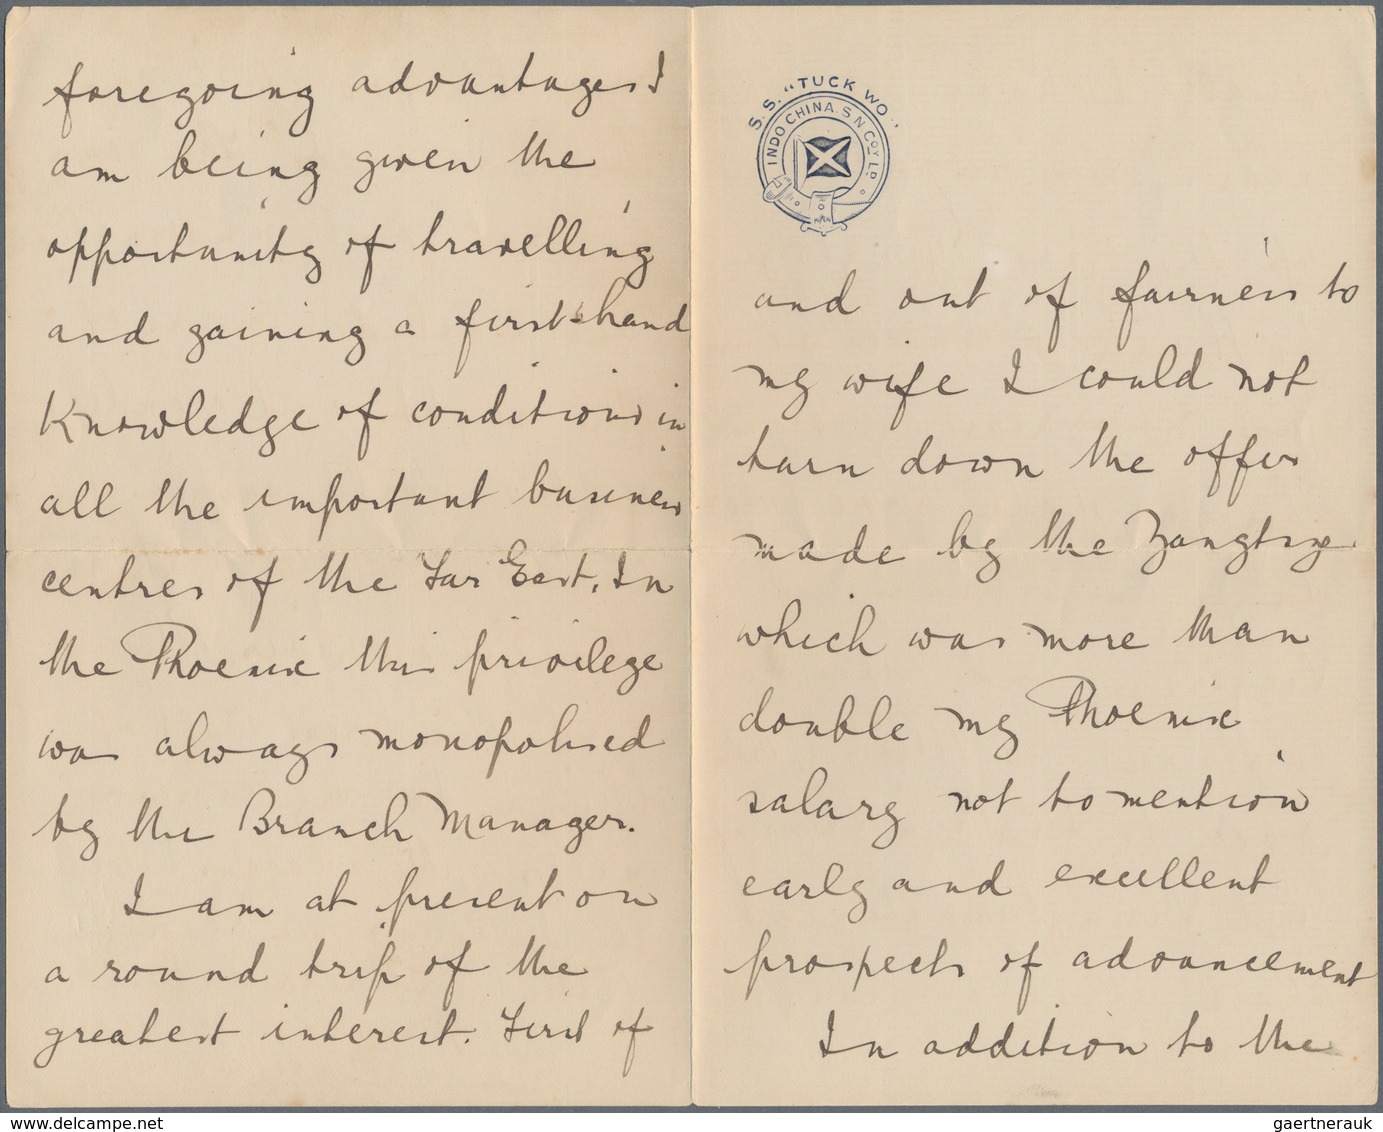 foregoing advantages I
am being given the
opportunity of travelling
and gaining a first-hand
Knowledge of conditions in
all the important business
centres of the Far East. In
the Phoenix this privilege
was always monopolised
by the Branch Manager.
I am at present on
a round trip of the
greatest interest. First of
S.S. "TUCK WO"
INDO CHINA. S N COY LD.
and out of fairness to
my wife I could not
turn down the offer
made by the Yangtsze
which was more than
double my Phoenix
salary not to mention
early and excellent
prospects of advancement
In addition to the
www.delcampe.net
gaertnerauk